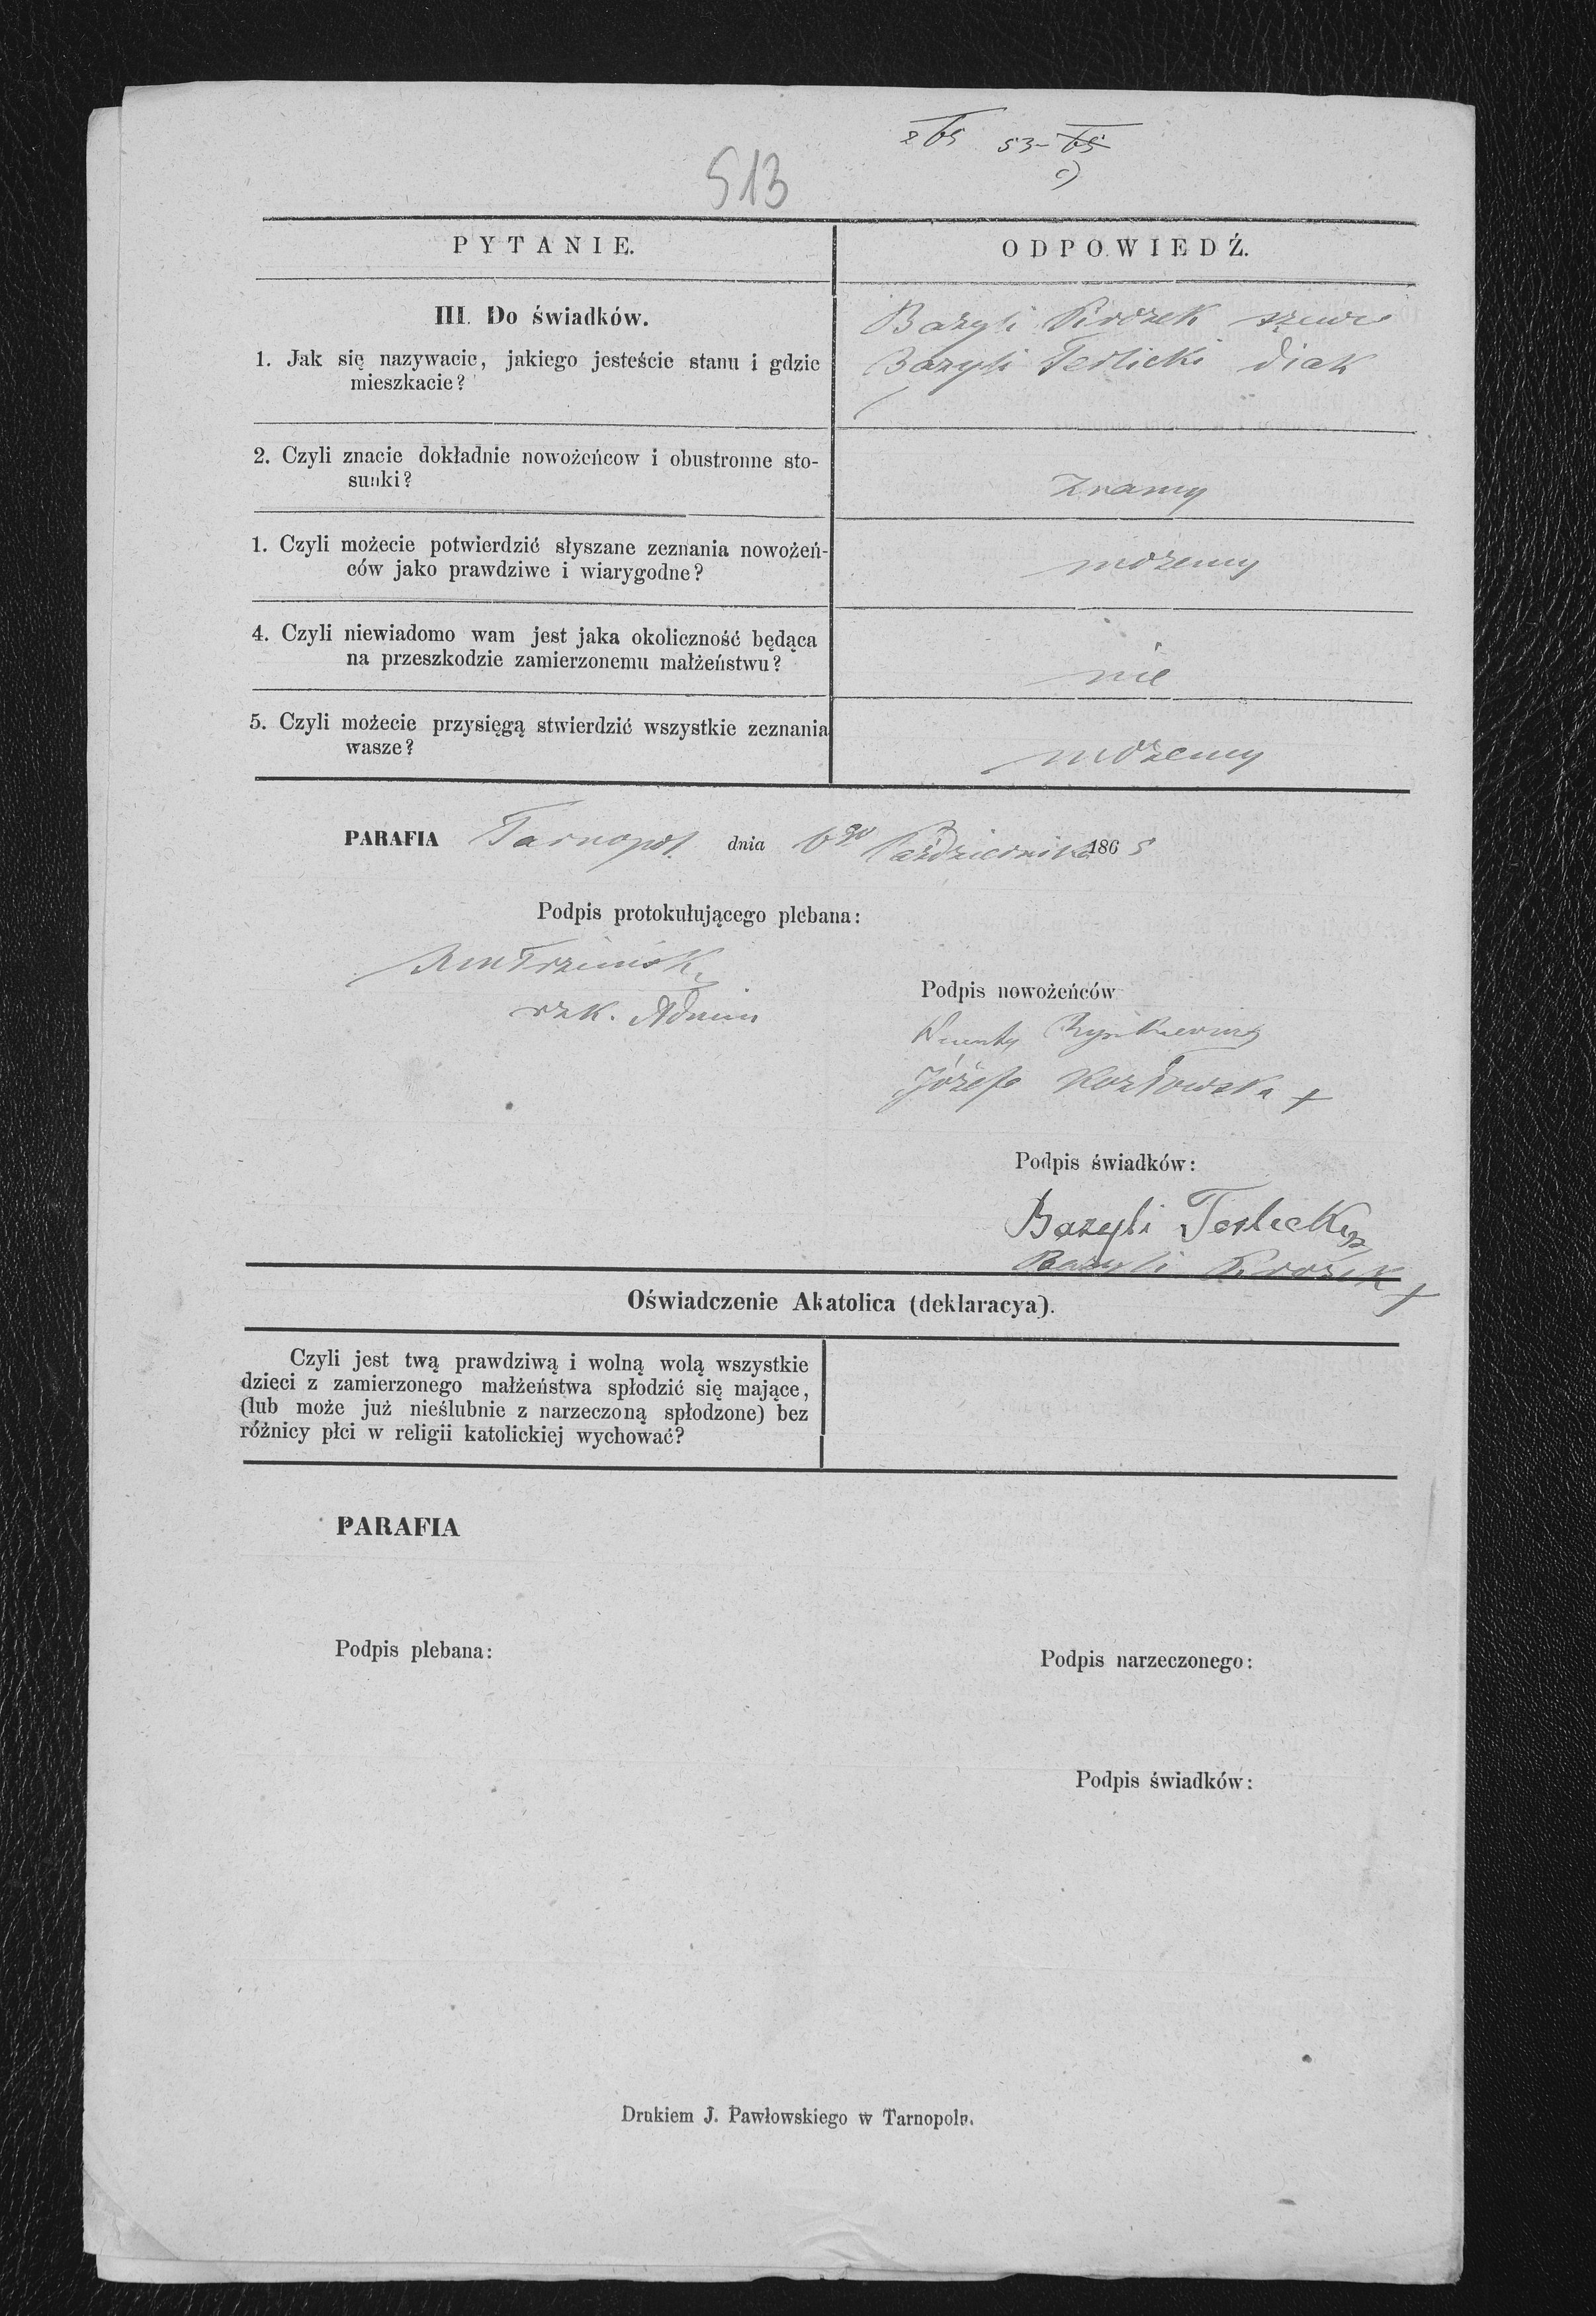 513
53-
c)
PYTANIE.
ODPOWIEDŹ.
III. Do świadków.
1. Jak się nazywacie, jakiego jesteście stanu i gdzie
mieszkacie?
Bazyli szewc
Bazyli Teslicki diak
2. Czyli znacie dokładnie nowożeńcow i obustronne sto-
sunki?
znamy
1. Czyli możecie potwierdzić słyszane zeznania nowożeń-
ców jako prawdziwe i wiarygodne?
możemy
4. Czyli niewiadomo wam jest jaka okoliczność będąca
na przeszkodzie zamierzonemu małżeństwu?
nie
5. Czyli możecie przysięgą stwierdzić wszystkie zeznania
wasze?
możemy
PARAFIA Tarnopol dnia 6go Października 1865
Podpis protokułującego plebana:
rzk. Admin
Podpis nowożeńców
Józefa Kozłowska +
Podpis świadków:
Bazyli Teslicki
Bazyli +
Oświadczenie Akatolica (deklaracya).
Czyli jest twą prawdziwą i wolną wolą wszystkie
dzieci z zamierzonego małżeństwa spłodzić się mające,
(lub może już nieślubnie z narzeczoną spłodzone) bez
różnicy płci w religii katolickiej wychować?
PARAFIA
Podpis plebana:
Podpis narzeczonego:
Podpis świadków:
Drukiem J. Pawłowskiego w Tarnopolu.